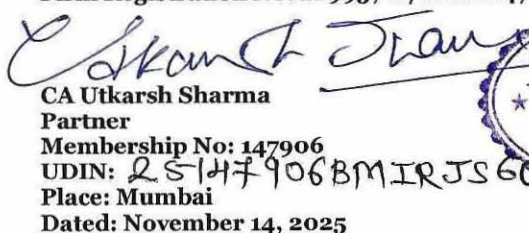 CA Utkarsh Sharma
Partner
Membership No: 147906
UDIN: 25147906BMIRJS60
Place: Mumbai
Dated: November 14, 2025